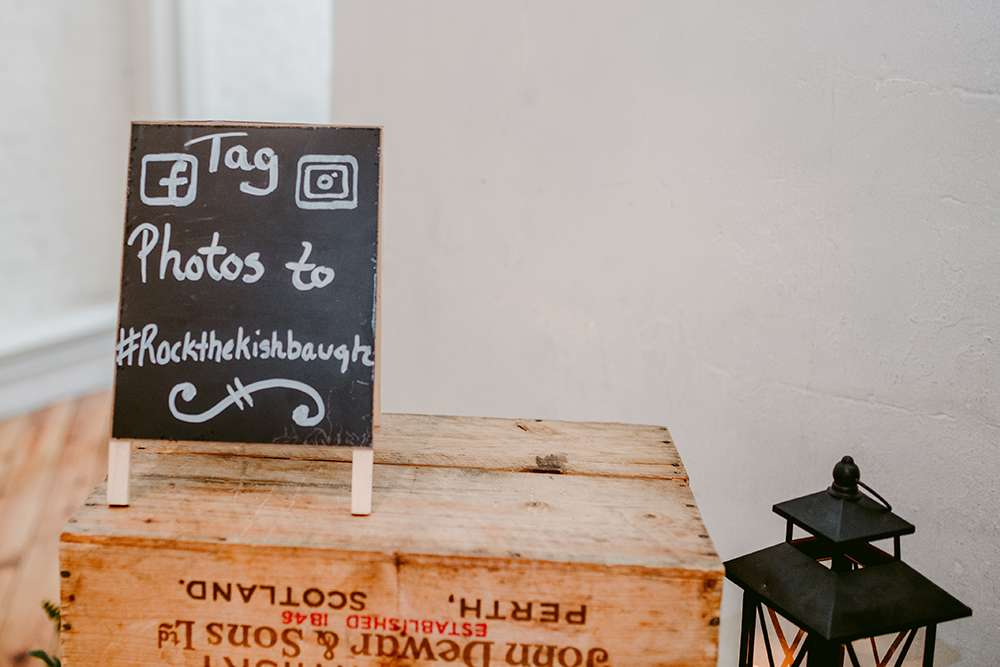 Tag
f
Photos to
#Rockthekishbaugh
John Dewar & Sons Ltd
ESTABLISHED 1846
PERTH, SCOTLAND.